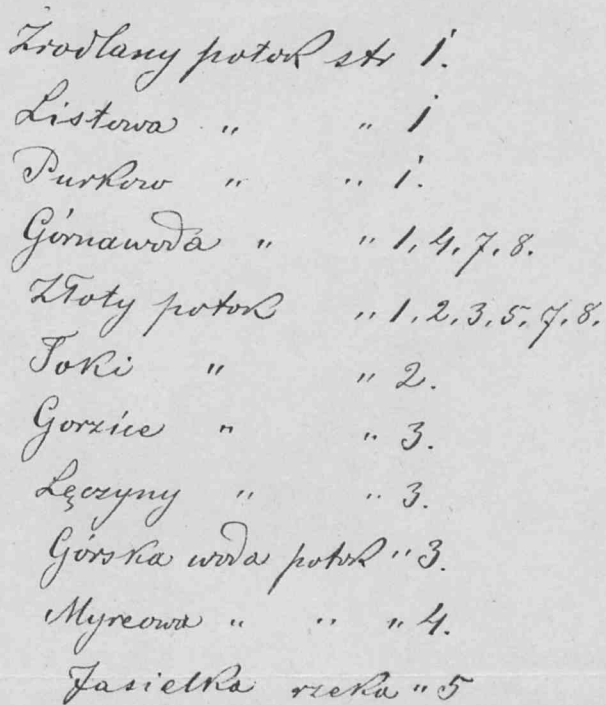 Zrodlany potok str 1.
Listowa " " 1
Purkow " " 1.
Górnawoda " " 1, 4, 7, 8.
Złoty potok " 1, 2, 3, 5, 7, 8.
Toki " " 2.
Gorzice " " 3.
Łęczyny " " 3.
Górska woda potok " 3.
Myrcowa " " " 4.
Jasielka rzeka " 5